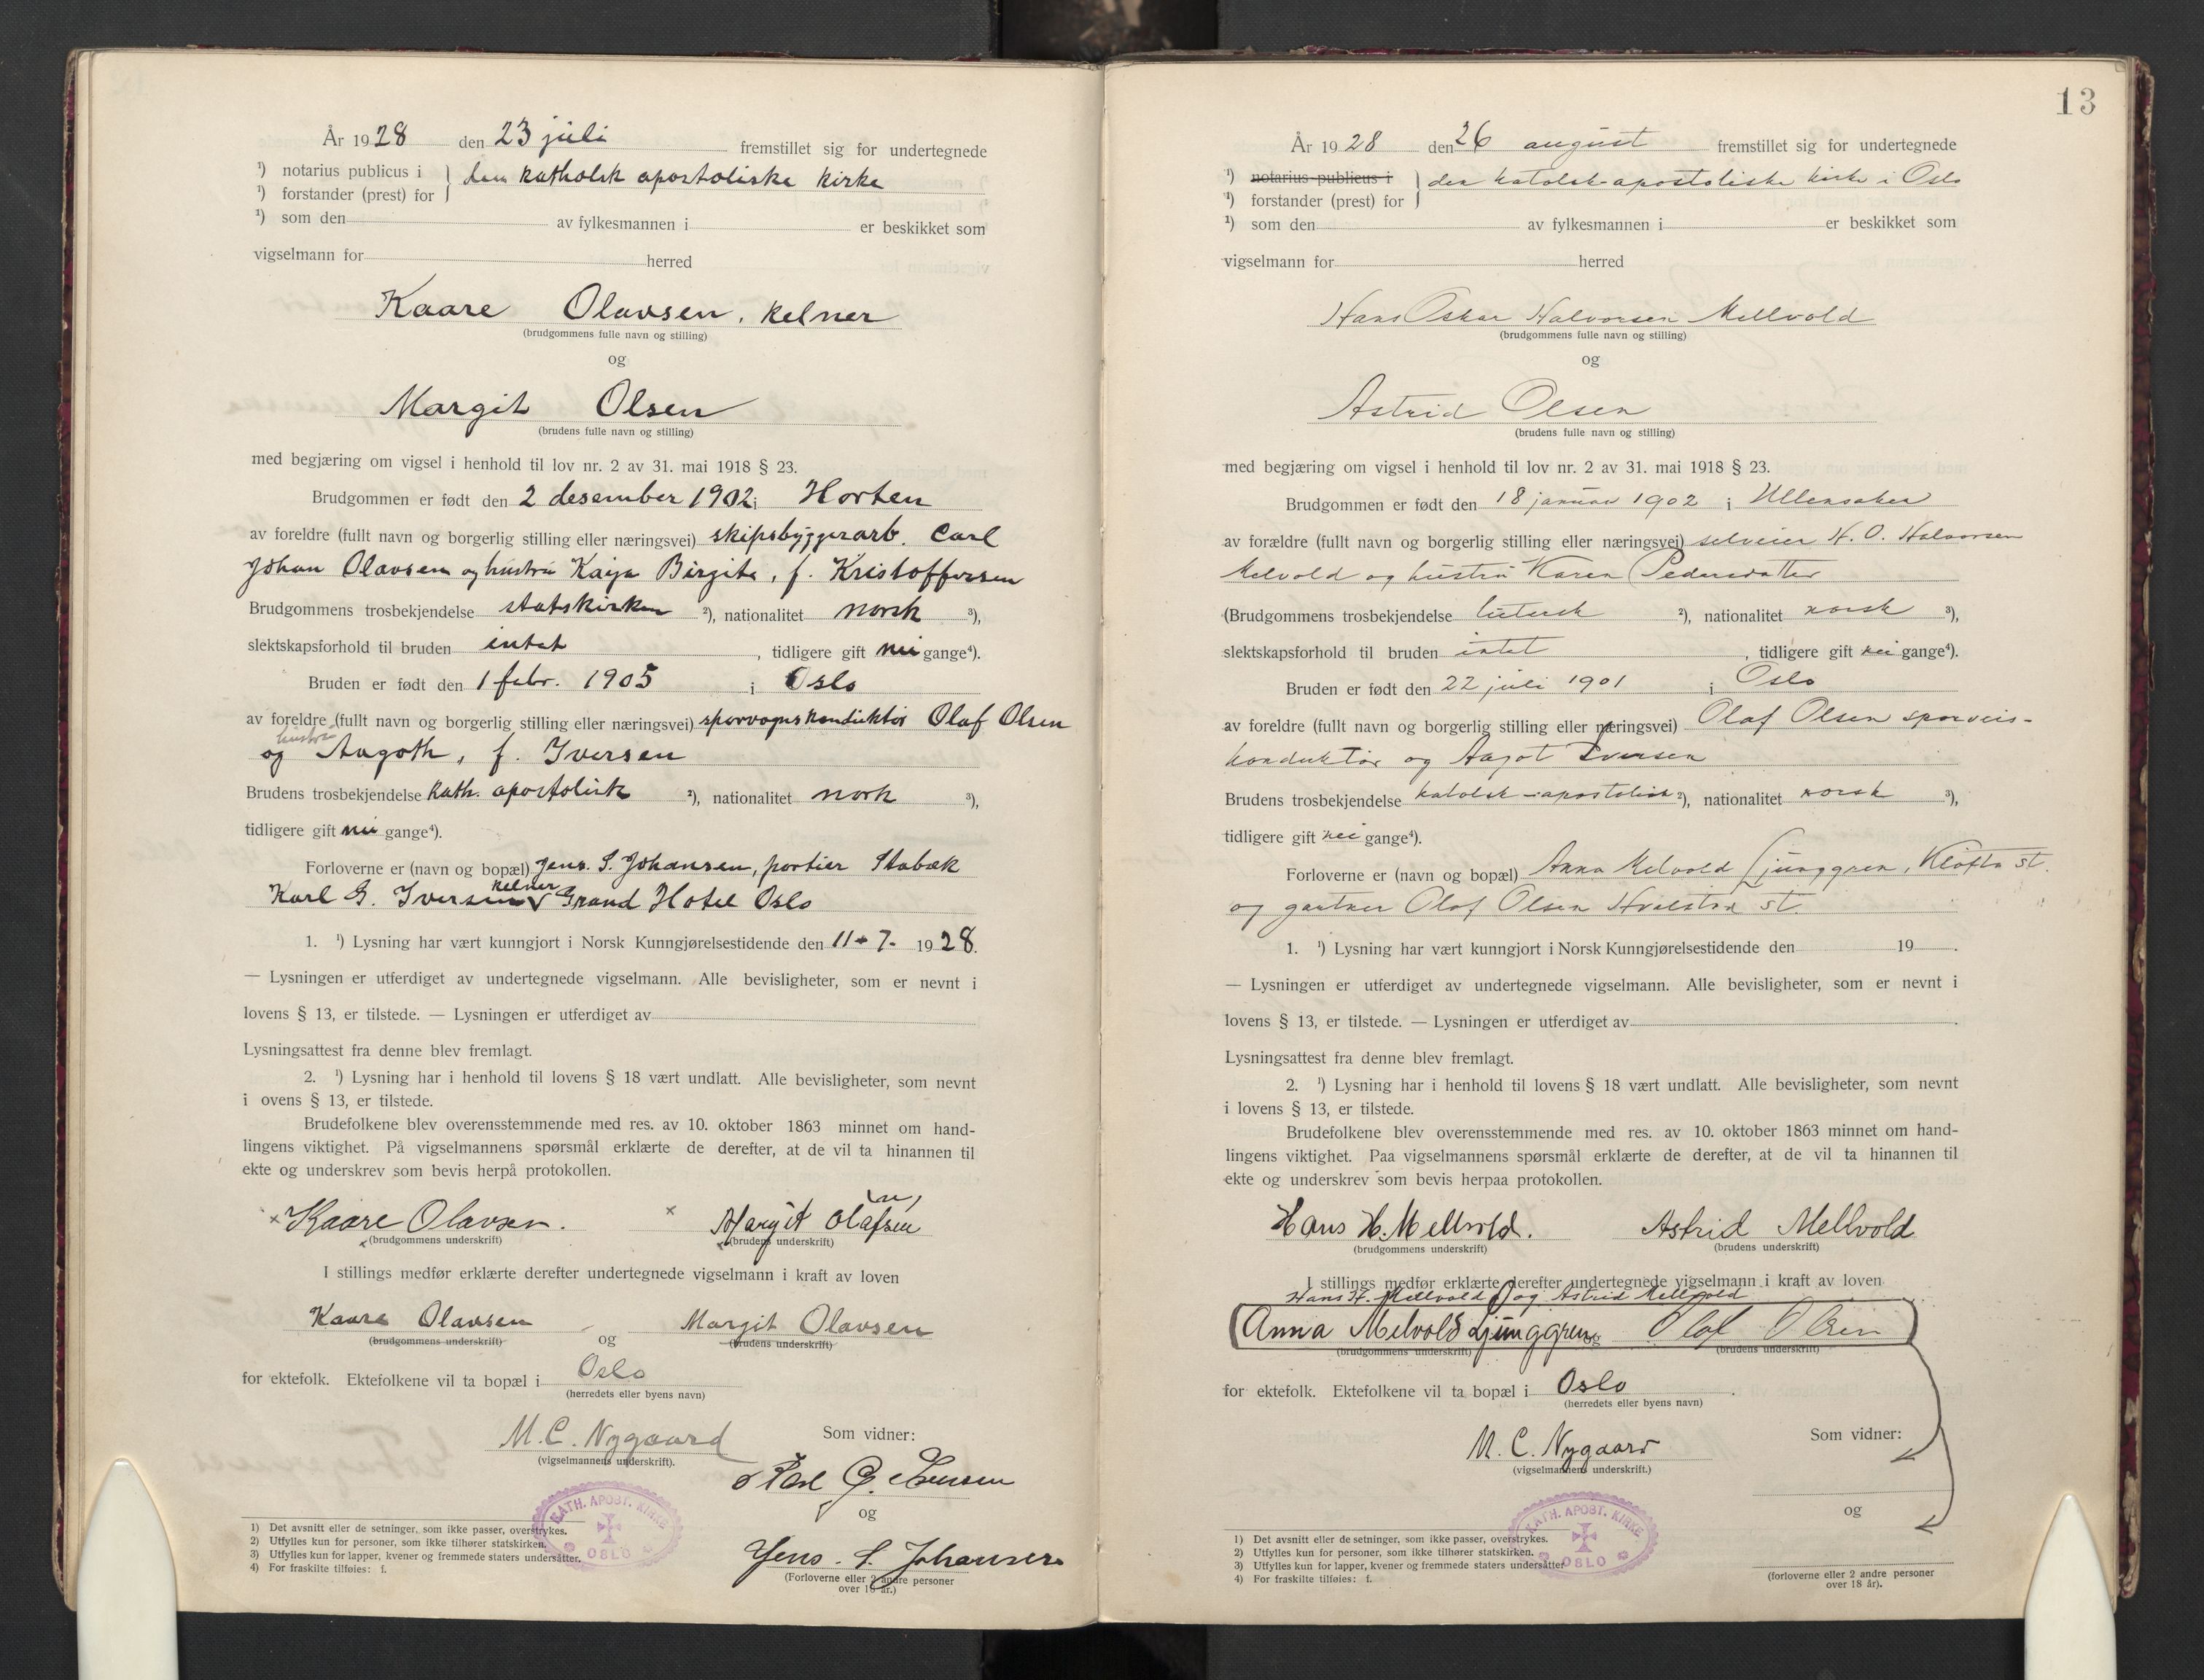 År 1928 den 23 juli fremstillet sig for undertegnede
¹) notarius publicus i } den katholsk apostoliske kirke
¹) forstander (prest) for
¹) som den av fylkesmannen i er beskikket som
vigselmann for herred
Kaare Olavsen, kelner
(brudgommens fulle navn og stilling)
og
Margit Olsen
(brudens fulle navn og stilling)
med begjæring om vigsel i henhold til lov nr. 2 av 31. mai 1918 § 23.
Brudgommen er født den 2 desember 1902 i Horten
av foreldre (fullt navn og borgerlig stilling eller næringsvei) skipsbyggerarb. Carl
Johan Olavsen og hustru Kaija Birgite, f. Kristoffersen
Brudgommens trosbekjendelse statskirken ²), nationalitet norsk ³),
slektskapsforhold til bruden intet , tidligere gift nei gange⁴).
Bruden er født den 1 febr. 1905 i Oslo
av foreldre (fullt navn og borgerlig stilling eller næringsvei) sporvognskonduktør Olaf Olsen
hustru
og Aagoth, f. Iversen
Brudens trosbekjendelse kath. apostolisk ²), nationalitet norsk ³),
tidligere gift nei gange⁴).
Forloverne er (navn og bopæl) Jens. S. Johansen, portier Stabæk
Karl G. Iversen kelner Grand Hotel Oslo
1. ¹) Lysning har vært kunngjort i Norsk Kunngjørelsestidende den 11-7- 1928.
— Lysningen er utferdiget av undertegnede vigselmann. Alle bevisligheter, som er nevnt i
lovens § 13, er tilstede. — Lysningen er utferdiget av
Lysningsattest fra denne blev fremlagt.
2. ¹) Lysning har i henhold til lovens § 18 vært undlatt. Alle bevisligheter, som nevnt
i ovens § 13, er tilstede.
Brudefolkene blev overensstemmende med res. av 10. oktober 1863 minnet om hand-
lingens viktighet. På vigselmannens spørsmål erklærte de derefter, at de vil ta hinannen til
ekte og underskrev som bevis herpå protokollen.
× Kaare Olavsen. × Margit Olafsen
(brudgommens underskrift) (brudens underskrift)
I stillings medfør erklærte derefter undertegnede vigselmann i kraft av loven
Kaare Olavsen og Margit Olavsen
(brudgommens underskrift) (brudens underskrift)
for ektefolk. Ektefolkene vil ta bopæl i Oslo
(herredets eller byens navn)
M. C. Nygaard
(vigselmannens underskrift).
Som vidner:
Karl G. Iversen
og
Jens. S. Johansen
(Forloverne eller 2 andre personer
over 18 år.)
KATH. APOST. KIRKE OSLO
1) Det avsnitt eller de setninger, som ikke passer, overstrykes.
2) Utfylles kun for personer, som ikke tilhører statskirken.
3) Utfylles kun for lapper, kvener og fremmede staters undersåtter.
4) For fraskilte tilføies: f.
13
År 1928 den 26 august fremstillet sig for undertegnede
¹) notarius publicus i } den katolsk-apostoliske kirke i Oslo
¹) forstander (prest) for
¹) som den av fylkesmannen i er beskikket som
vigselmann for herred
Hans Oskar Halvorsen Mellvold
(brudgommens fulle navn og stilling)
og
Astrid Olsen
(brudens fulle navn og stilling)
med begjæring om vigsel i henhold til lov nr. 2 av 31. mai 1918 § 23.
Brudgommen er født den 18 januar 1902 i Ullensaker
av forældre (fullt navn og borgerlig stilling eller næringsvei) selveier H. O. Halvorsen
Melvold og hustru Karen Pedersdatter
(Brudgommens trosbekjendelse lutersk ²), nationalitet norsk ³),
slektskapsforhold til bruden intet , tidligere gift nei gange⁴).
Bruden er født den 22 juli 1901 i Oslo
av foreldre (fullt navn og borgerlig stilling eller næringsvei) Olaf Olsen sporveis-
konduktør og Aagot f Iversen
Brudens trosbekjendelse katolsk-apostolisk ²), nationalitet norsk ³),
tidligere gift nei gange⁴).
Forloverne er (navn og bopæl) Anna Melvold Ljunggren, Kløfta st.
og gartner Olaf Olsen Hvalstad st.
1. ¹) Lysning har vært kunngjort i Norsk Kunngjørelsestidende den 19 .
— Lysningen er utferdiget av undertegnede vigselmann. Alle bevisligheter, som er nevnt i
lovens § 13, er tilstede. — Lysningen er utferdiget av .
Lysningsattest fra denne blev fremlagt.
2. ¹) Lysning har i henhold til lovens § 18 vært undlatt. Alle bevisligheter, som nevnt
i lovens § 13, er tilstede.
Brudefolkene blev overensstemmende med res. av 10. oktober 1863 minnet om hand-
lingens viktighet. Paa vigselmannens spørsmål erklærte de derefter, at de vil ta hinannen til
ekte og underskrev som bevis herpaa protokollen.
Hans H. Mellvold. Astrid Mellvold
(brudgommens underskrift) (brudens underskrift)
I stillings medfør erklærte derefter undertegnede vigselmann i kraft av loven
Hans H. Mellvold og Astrid Mellvold
Anna Melvold Ljunggren og Olaf Olsen
(brudgommens underskrift) (brudens underskrift)
for ektefolk. Ektefolkene vil ta bopæl i Oslo .
(herredets eller byens navn)
M. C. Nygaard
(vigselmannens underskrift.)
Som vidner:
og
(forloverne eller 2 andre personer
over 18 år).
KATH. APOST. KIRKE OSLO
1) Det avsnitt eller de setninger, som ikke passer, overstrykes.
2) Utfylles kun for personer, som ikke tilhører statskirken.
3) Utfylles kun for lapper, kvener og fremmede staters undersåtter
4) For fraskilte tilføies: f.